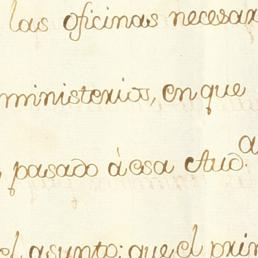 las oficinas necesar
ministerios, en que
pasado á esa Aud.a
el asunto; que el prim